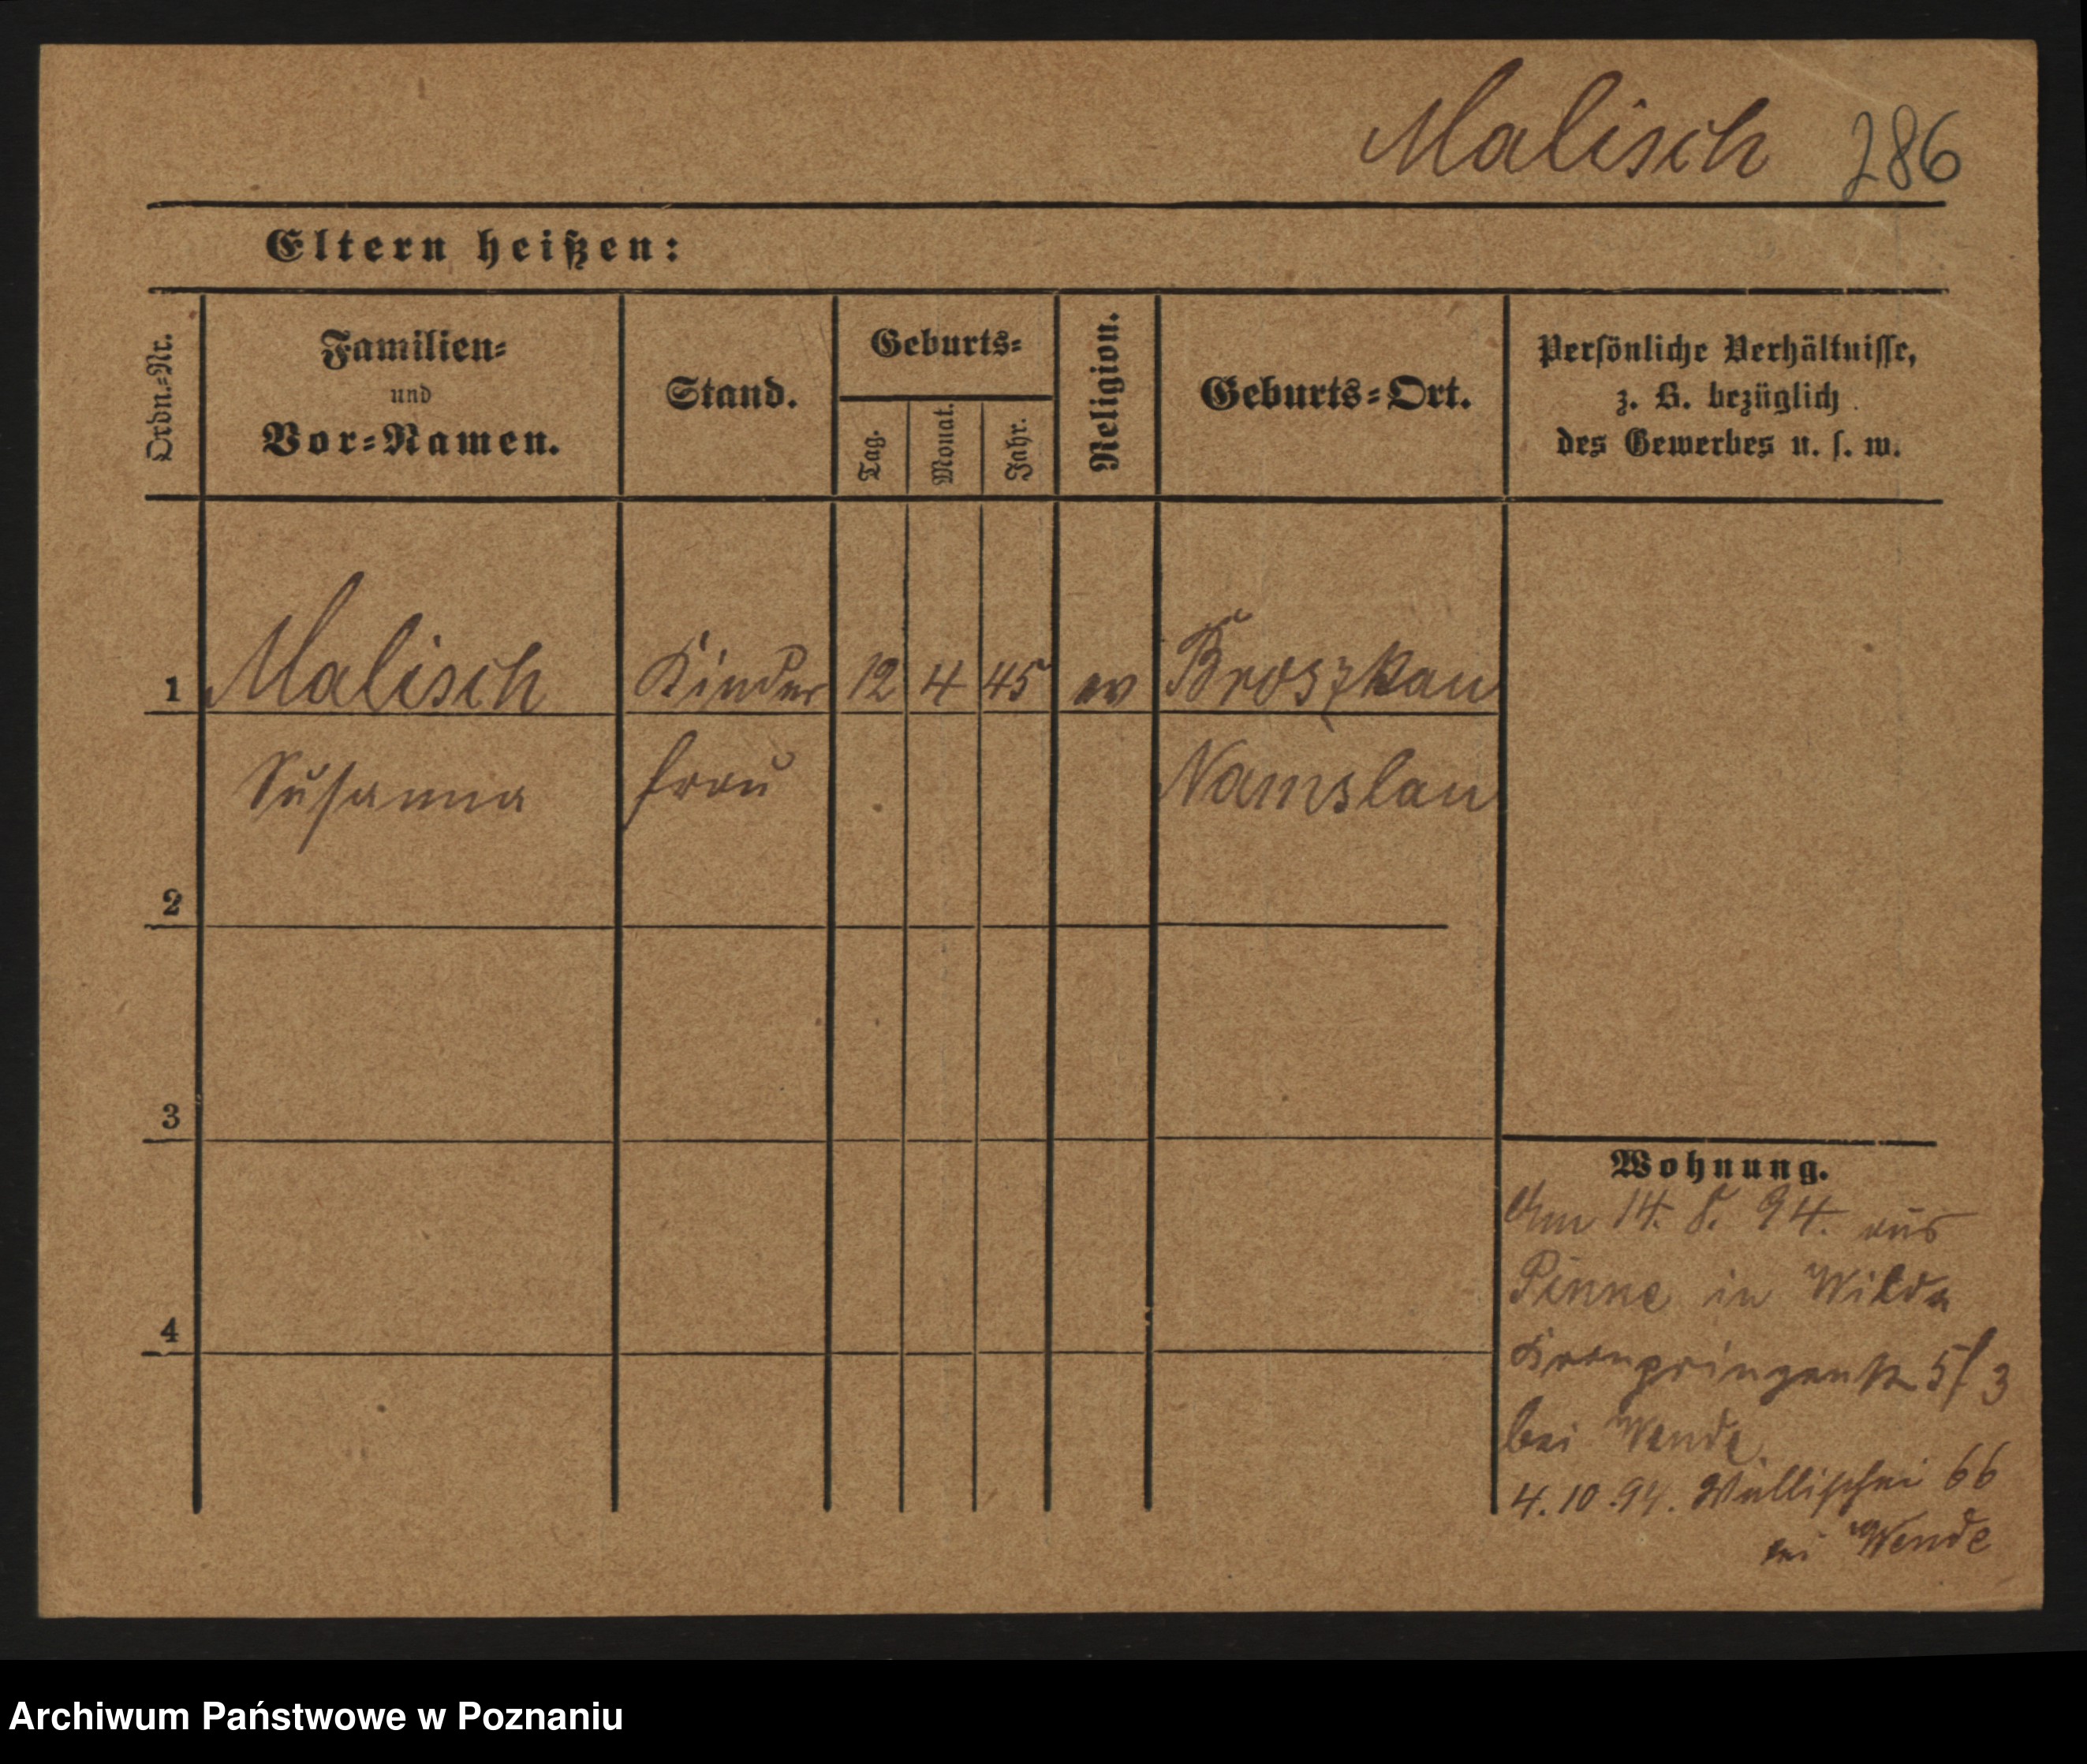 Malisch 286
Eltern heißen:
Ordn.-Nr.
Familien-
und
Vor-Namen.
Stand.
Geburts-
Tag.
Monat.
Jahr.
Religion.
Geburts-Ort.
Persönliche Verhältnisse,
z. B. bezüglich
des Gewerbes u. s. w.
1 Malisch Kinder 12 4 45 ev Broszkau
Susanna frau Namslau
2
3
4
Wohnung.
Am 14. 8. 94. aus
Pinne in Wilda
Kronprinzenstr 5/3
bei Wende
4.10.94. Wallischei 66
bei Wende
Archiwum Państwowe w Poznaniu